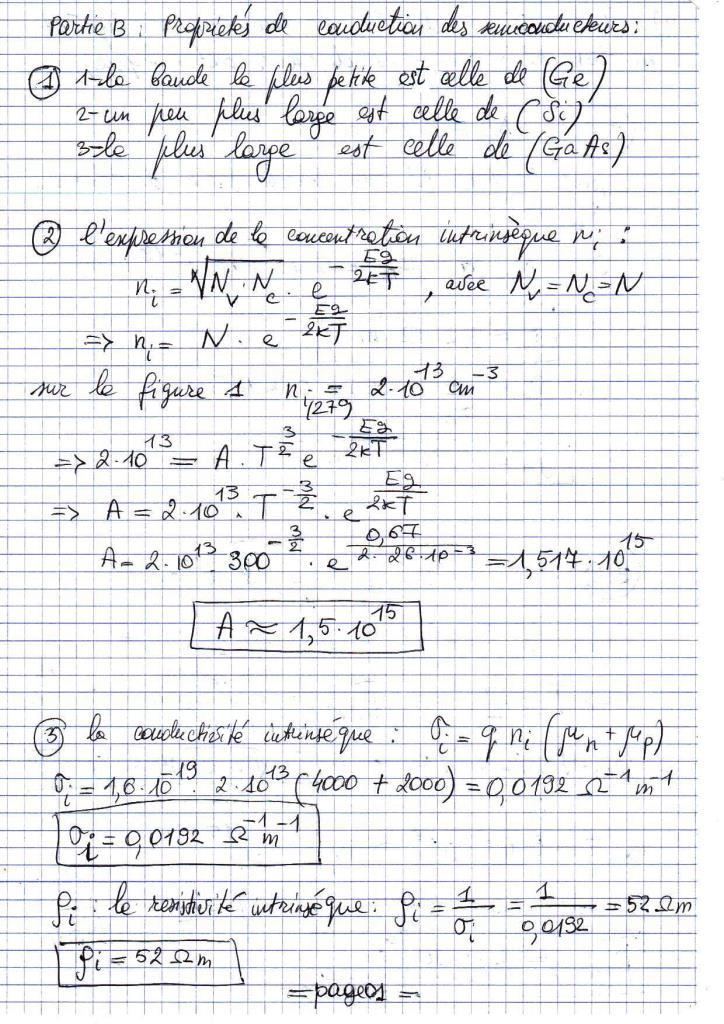 Partie B : Propriétés de conduction des semiconducteurs :
① 1-la bande la plus petite est celle de (Ge)
2-un peu plus large est celle de (Si)
3-la plus large est celle de (GaAs)
② l'expression de la concentration intrinsèque nᵢ :
nᵢ = √(N_v · N_c) · e^(-Eg/2kT) , avec N_v = N_c = N
=> nᵢ = N · e^(-Eg/2kT)
sur la figure 1 nᵢ(27°) = 2·10¹³ cm⁻³
=> 2·10¹³ = A · T^(3/2) e^(-Eg/2kT)
=> A = 2·10¹³ · T^(-3/2) · e^(Eg/2kT)
A = 2·10¹³ · 300^(-3/2) · e^(0,67/(2·26·10⁻³)) = 1,517·10¹⁵
A ≈ 1,5·10¹⁵
③ la conductivité intrinsèque : σᵢ = q nᵢ (μn + μp)
σᵢ = 1,6·10⁻¹⁹ · 2·10¹³ (4000 + 2000) = 0,0192 Ω⁻¹ m⁻¹
σᵢ = 0,0192 Ω⁻¹ m⁻¹
ρᵢ : la resistivité intrinsèque : ρᵢ = 1/σᵢ = 1/0,0192 = 52 Ωm
ρᵢ = 52 Ωm
= page01 =